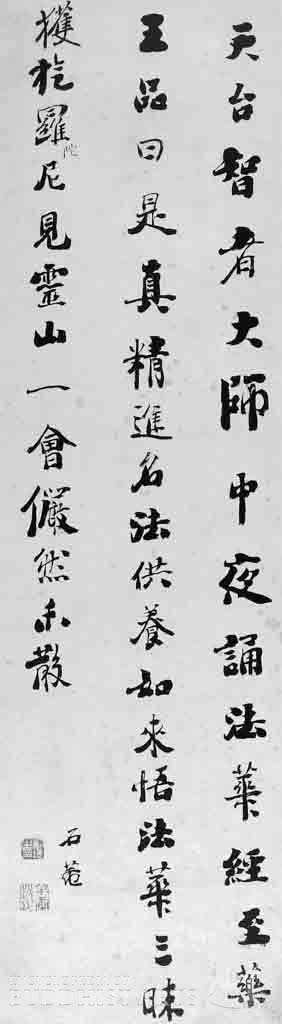 天台智者大師中夜誦法華經至藥
王品曰是真精進名法供養如來悟法華三昧
獲旋羅尼見靈山一會儼然未散
陀
石菴